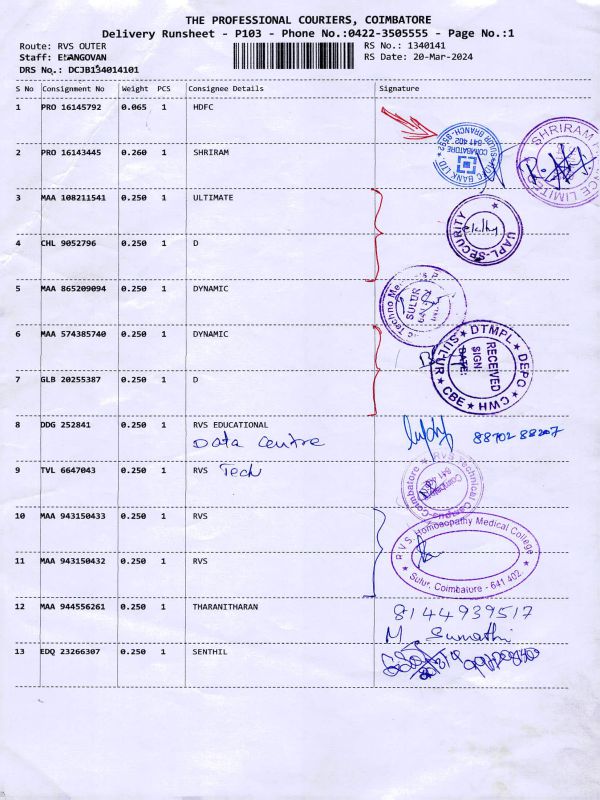 THE PROFESSIONAL COURIERS, COIMBATORE
Delivery Runsheet - P103 - Phone No.:0422-3505555 - Page No.:1
Route: RVS OUTER
RS No.: 1340141
Staff: ELANGOVAN
RS Date: 20-Mar-2024
DRS No.: DCJB134014101
S No Consignment No Weight PCS Consignee Details Signature
1 PRO 16145792 0.065 1 HDFC
2 PRO 16143445 0.260 1 SHRIRAM
3 MAA 108211541 0.250 1 ULTIMATE
UAPL-SECURITY
4 CHL 9052796 0.250 1 D
5 MAA 865209094 0.250 1 DYNAMIC
6 MAA 574385740 0.250 1 DYNAMIC
DTMPL DEPO
RECEIVED
SIGN:
DATE:
CBE HMC
7 GLB 20255387 1 0.250 D
8 DDG 252841 0.250 1 RVS EDUCATIONAL
Data Centre
88702 88207
9 TVL 6647043 0.250 1 RVS Tech
10 MAA 943150433 0.250 1 RVS
R.V.S. Homoeopathy Medical College
Sulur, Coimbatore - 641 402
11 MAA 943150432 0.250 1 RVS
12 MAA 944556261 0.250 1 THARANITHARAN
8144939517
M. Sumathi
13 EDQ 23266307 0.250 1 SENTHIL